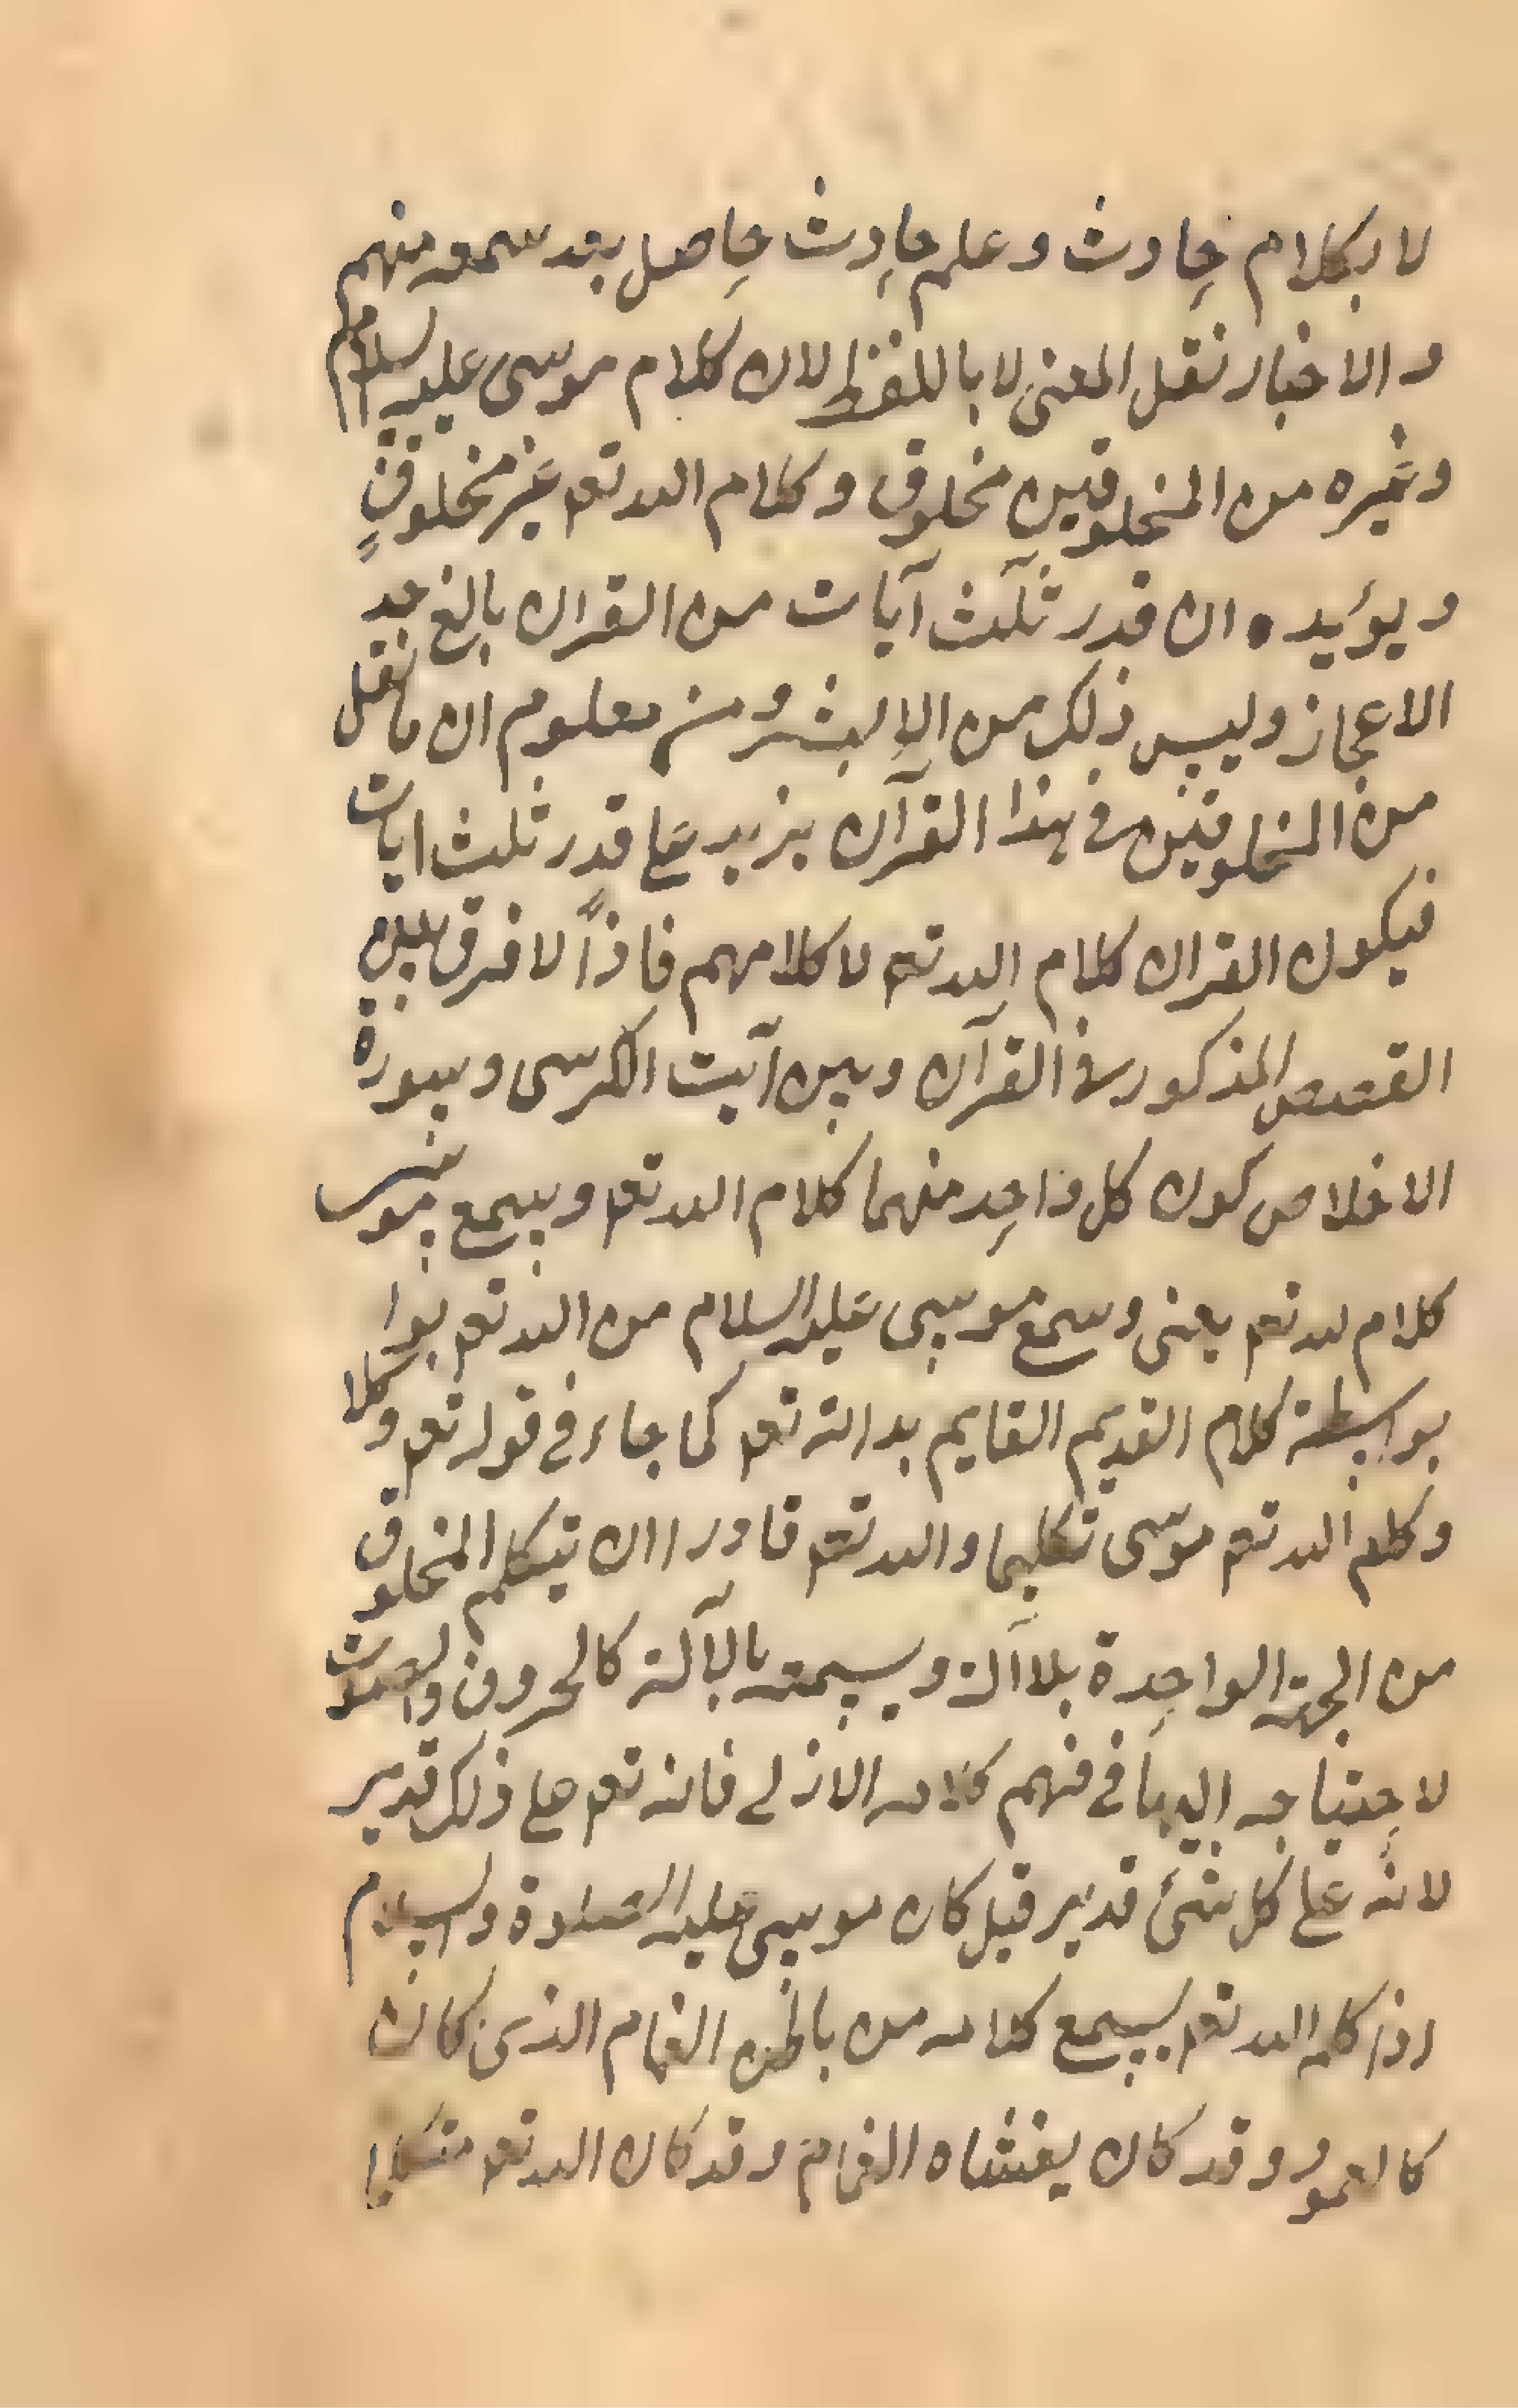 لا بكلام حادث وعلم حادث حاصل بعد سمعه منهم
والاخبار نقل المعنى لا باللفظ لان كلام موسى عليه السلام
وغيره من المخلوقين مخلوق وكلام الله تعم غير مخلوقٍ
ويؤيده ان قدر ثلث آيات من القران بالغ حد
الاعجاز وليس ذلك من البشر ومن معلوم ان ما نقل
من المخلوقين في هذا القرآن يزيد على قدر ثلث ايات
فيكون القران كلام الله تعم لا كلامهم فاذاً لا فرق بين
القصص المذكور في القرآن وبين آيت الكرسى وسورة
الاخلاص كون كل واحد منهما كلام الله تعم ويسمع موسى
كلام لله تعم يعنى وسمع موسى عليه السلام من الله تعم بوا
بواسطة كلام القديم القايم بذاته تعم كما جاء في قوله تعم وكلا
وكلم الله تعم موسى تكليما والله تعم قادر ان يتكلم المخلوق
من الجهة الواحدة بلا آلة ويسمعه بالآلة كالحروف والصوت
لاحتياجه اليها في فهم كلامه الازلى فانه تعم على ذلك قدير
لانه على كل شئ قدير قيل كان موسى عليه الصلوة والسلام
اذا كلمه الله تعم يسمع كلامه من باطن الغمام الذى كان
كالعمود وقد كان يغشاه الغمام وقد كان الله تعم متكلما